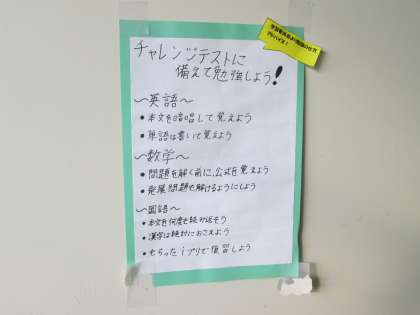 チャレンジテストに
備えて勉強しよう!
〜英語〜
•本文を暗唱して覚えよう
•単語は書いて覚えよう
〜数学〜
•問題を解く前に、公式を覚えよう
•発展問題も解けるようにしよう
〜国語〜
•本文を何度も読み返そう
•漢字は絶対におさえよう
•もらったiプリで復習しよう
学習委員 勉強の仕方
アドバイス!